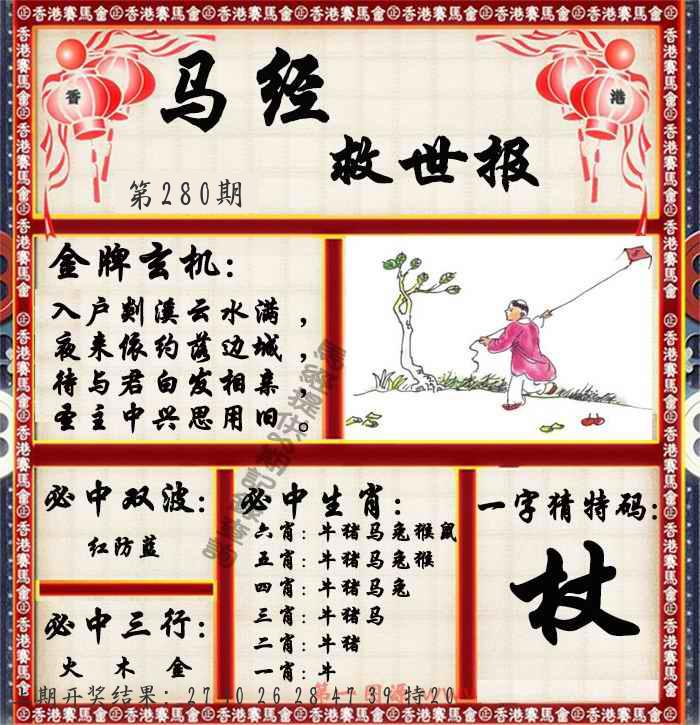 香港賽馬會
香
港
马经
救世报
第280期
金牌玄机：
入户剡溪云水满，
夜来依约落边城，
待与君王发相亲，
圣主中兴思用旧。
必中双波：
红防蓝
必中三行：
火 木 金
必中生肖：
六肖：牛猪马兔猴鼠
五肖：牛猪马兔猴
四肖：牛猪马兔
三肖：牛猪马
二肖：牛猪
一肖：牛
一字猜特码：
杖
期开奖结果：27 40 26 28 47 39 特20
第一图源